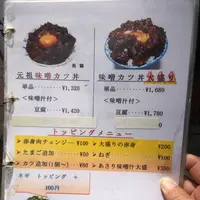 元祖味噌カツ丼
単品 ¥1,320
(味噌汁付)
豆腐 ¥1,420
味噌カツ丼大盛り
単品 ¥1,680
(味噌汁付)
豆腐 ¥1,780
トッピングメニュー
赤身肉チェンジー ¥100
たまご追加 ¥50
カツ追加(1個〜) ¥80
大盛りの赤身 ¥200
ねぎ ¥100
あさり味噌汁大盛 ¥350
ネギ トッピング +
100円